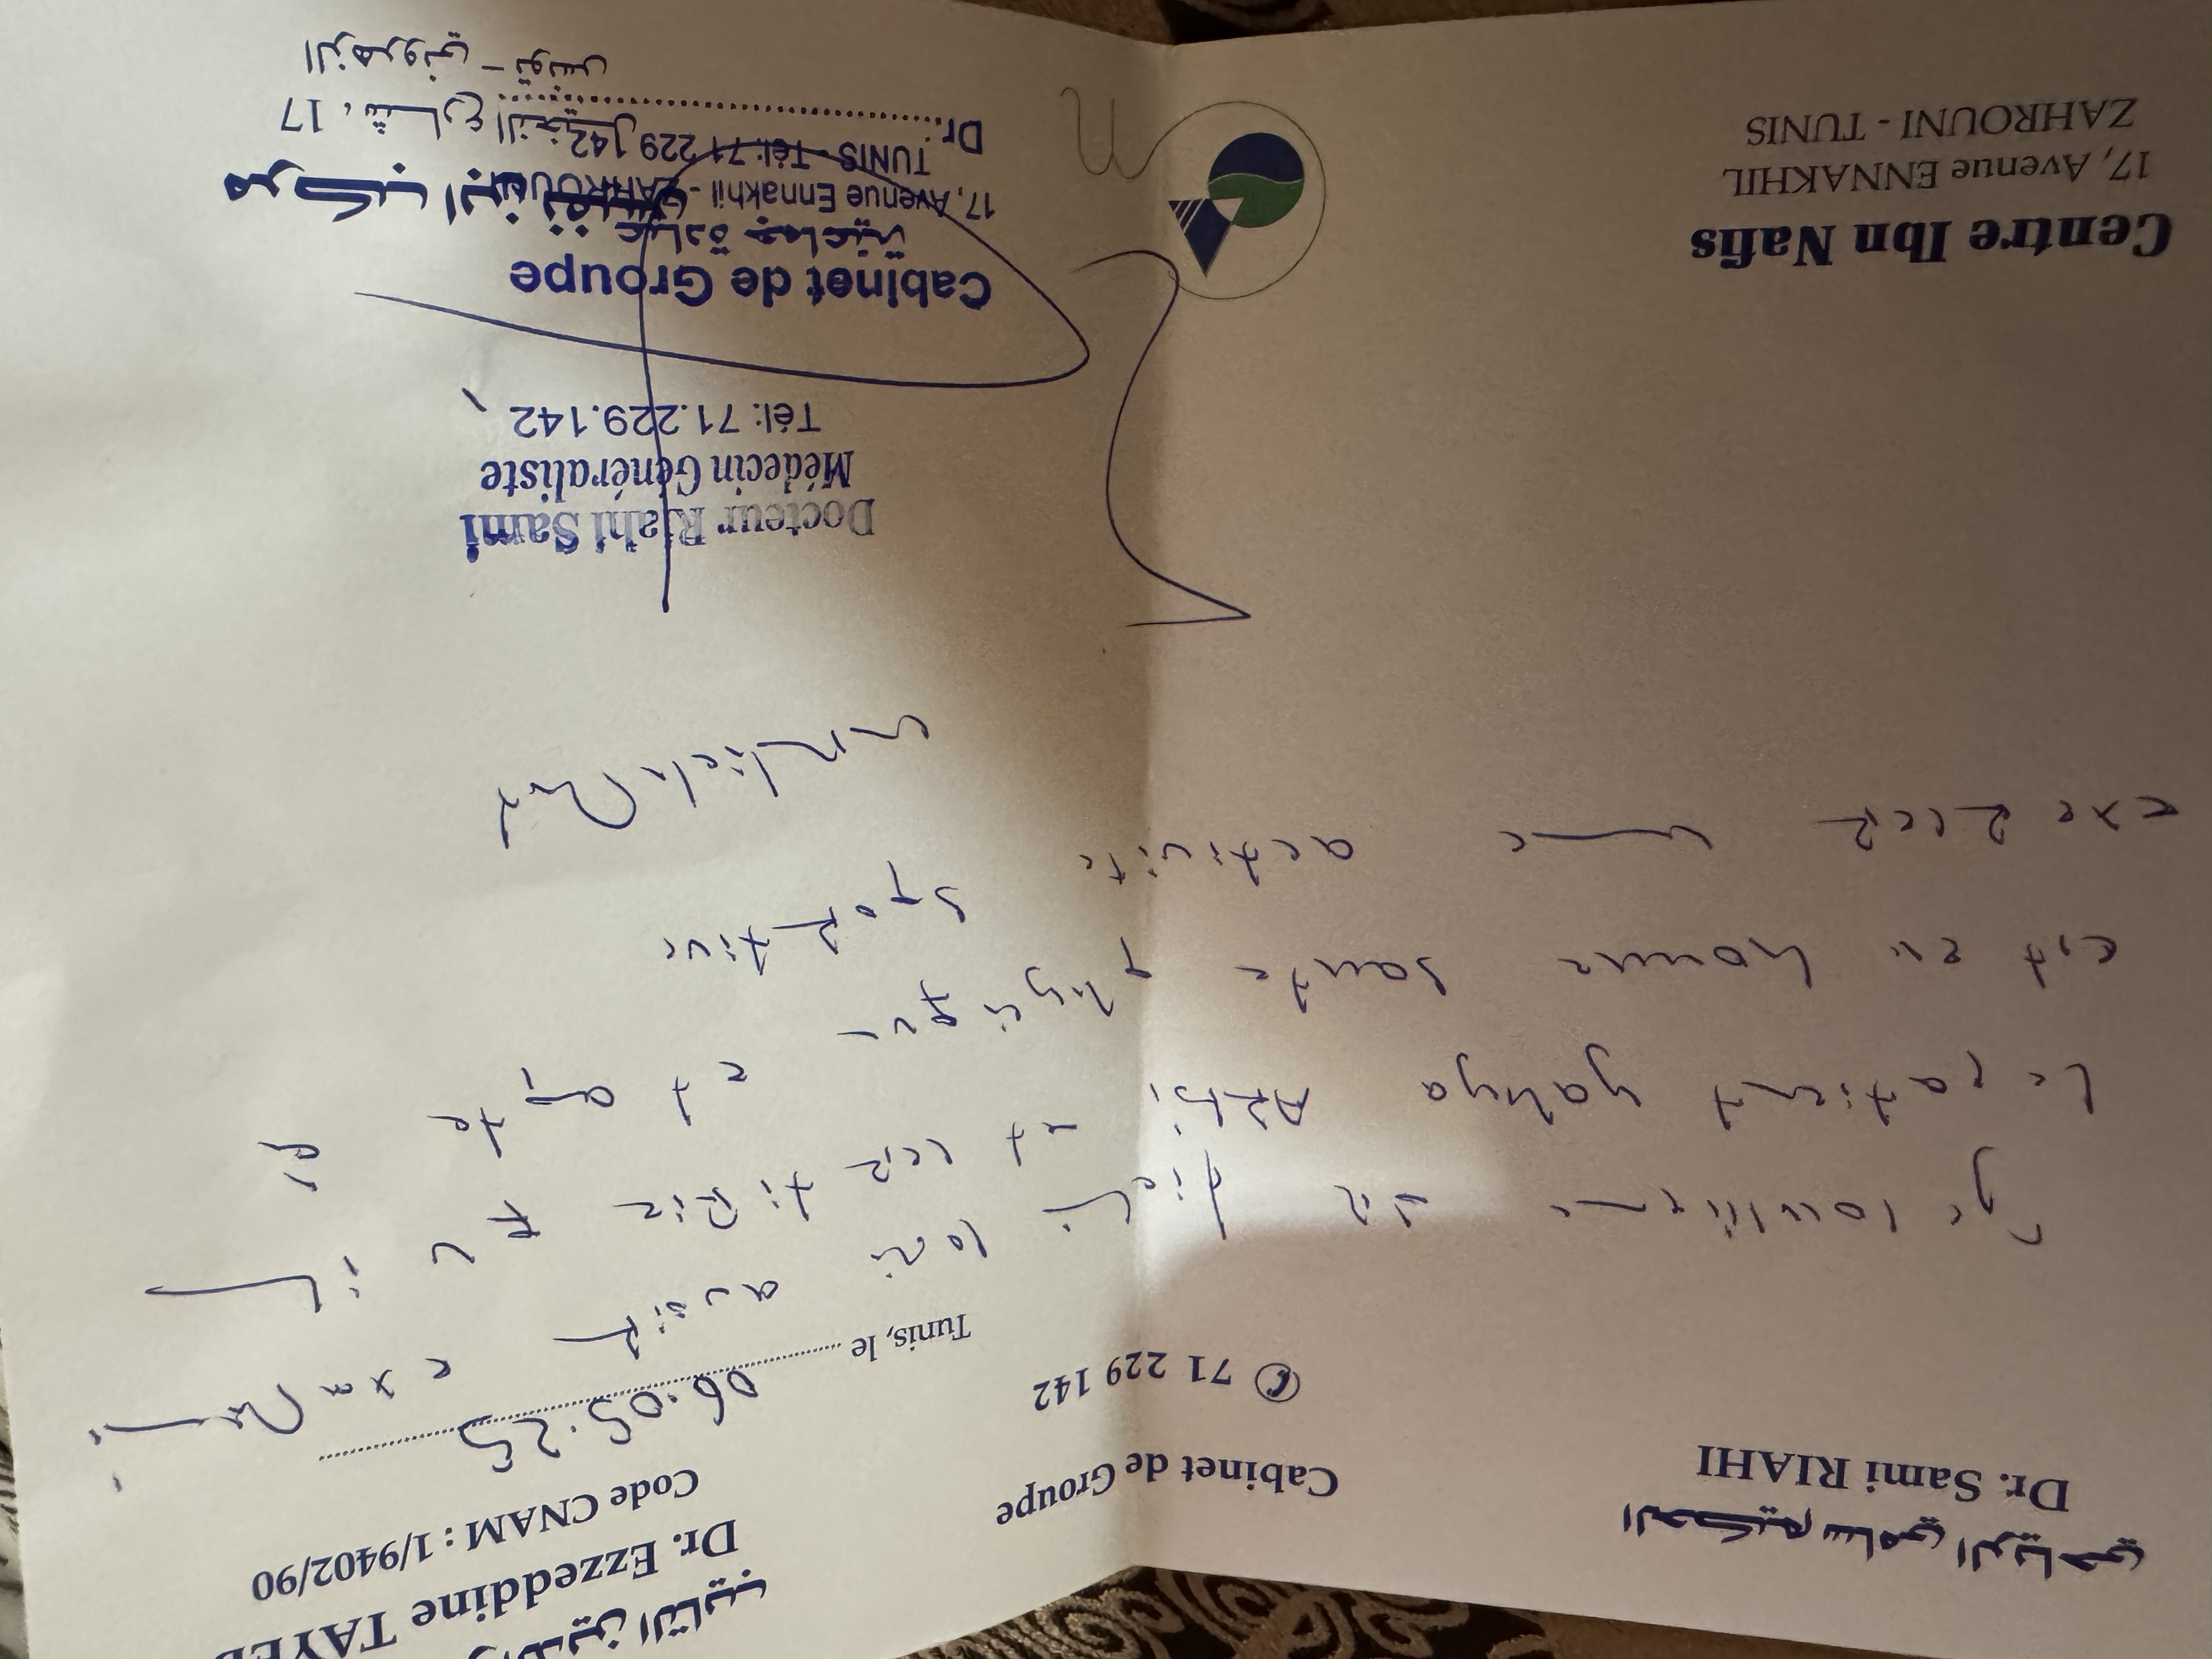 الحكيم سامي الرياحي
Dr. Sami RIAHI
الدين التايب
Dr. Ezzeddine TAYE
Code CNAM : 1/9402/90
Cabinet de Groupe
✆ 71 229 142
Tunis, le 06.05.25
Je soussigné Dr Riahi Sami avoir examiné
le patient yahya Arbi et certifie qu'il
est en bonne santé physique et apte à
exercer une activité sportive
Docteur Riahi Sami
Médecin Généraliste
Tél: 71.229.142
Cabinet de Groupe
عيادة جماعية
17, Avenue Ennakhil - ZAHROUNI
TUNIS - Tél: 71 229 142
Dr:
Centre Ibn Nafis
17, Avenue ENNAKHIL
ZAHROUNI - TUNIS
مركب ابن نفيس
17 ، شارع النخيل
الزهروني - تونس